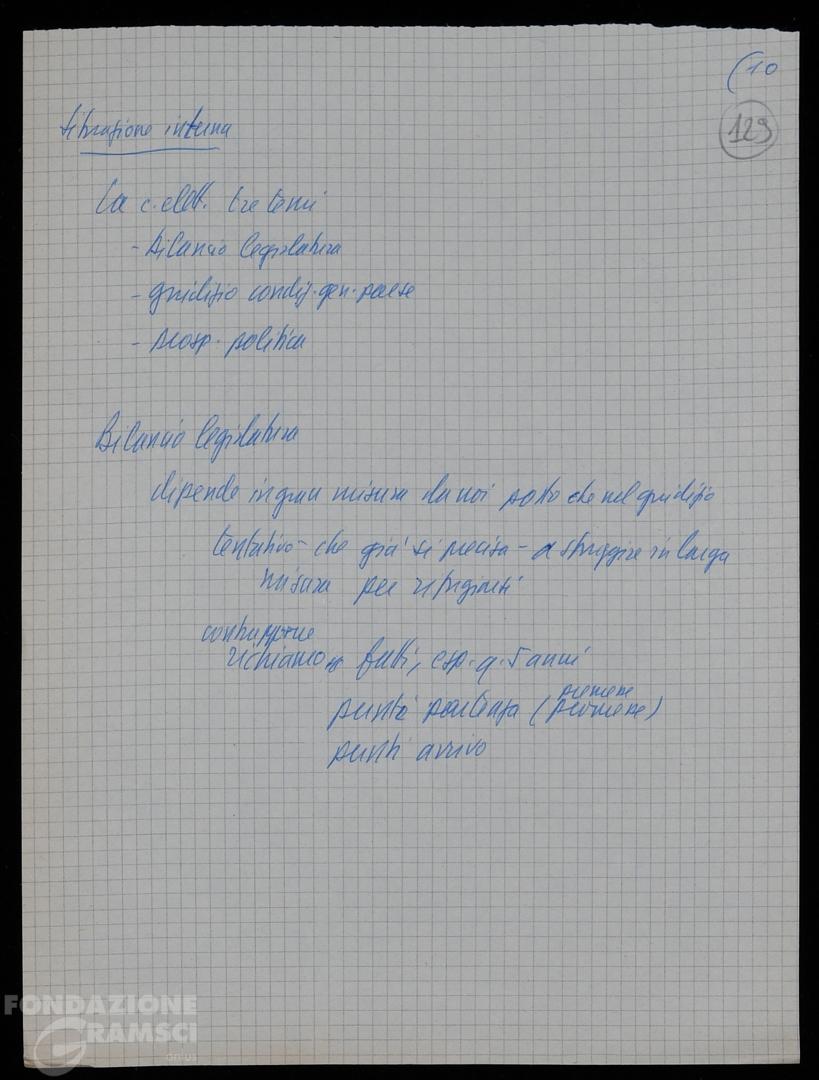 (10
129
Situazione interna
La c. elett. tre temi
- bilancio legislatura
- giudizio condiz. gen. paese
- prosp. politica
Bilancio legislatura
dipende in gran misura da noi porto che nel giudizio
tentativo - che già si precisa - a sfuggire in larga
misura per
contrapporre
richiamo fatti, esp. q. 5 anni
punti partenza (
punti arrivo
FONDAZIONE
GRAMSCI
onlus